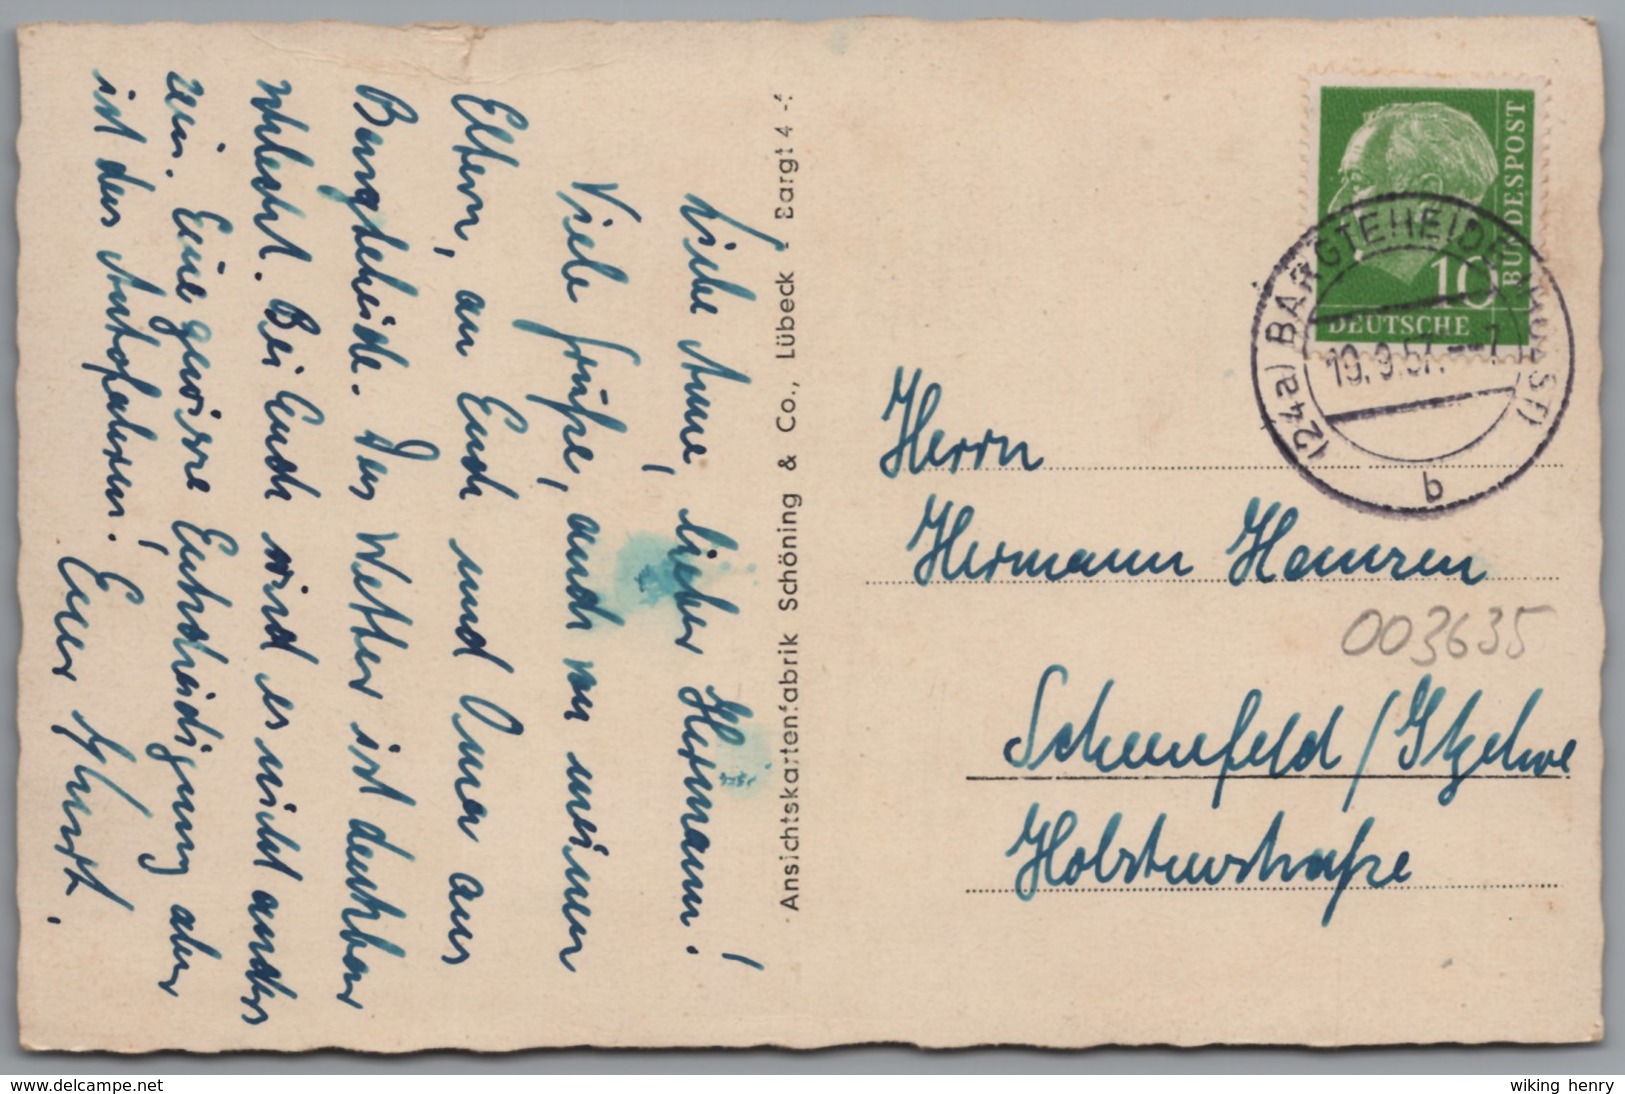 Liebe Anne, lieber Hermann!
Viele Grüße, auch von meinen
Eltern, an Euch und Oma aus
Bargteheide. Das Wetter ist denkbar
schlecht. Bei Euch wird es nicht anders
sein. Eine gewisse Entschädigung aber
ist das Autofahren! Euer Horst.
Ansichtskartenfabrik Schöning & Co., Lübeck - Bargt 4
DEUTSCHE
BUNDESPOST
10
(24a) BARGTEHEIDE (HOLST)
19.9.57.--7
b
Herrn
Hermann Hamzen
003635
Scheenefeld / Itzehoe
Holstenstraße
www.delcampe.net
wiking henry